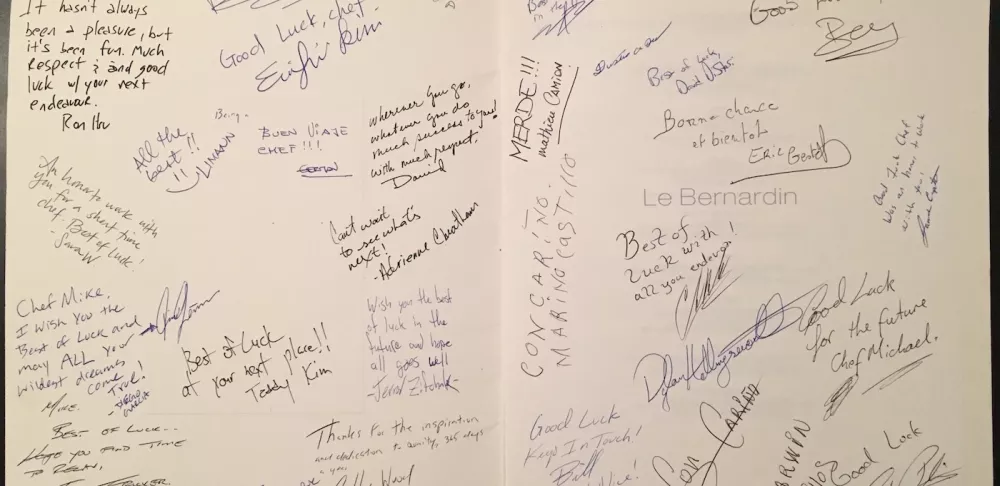 It hasn't always
been a pleasure, but
it's been fun. Much
Respect & and good
luck w/ your next
endeavour.
Good Luck, chef
All the
best!!
BUEN VIAJE
CHEF!!!
wherever you go,
whatever you do
much success to you!
with much respect.
David
An honor to work with
you for a short time
chef. Best of Luck!
Can't wait
to see what's
next!
-Adrienne Cheatham
Chef Mike,
I wish you the
Best of Luck and
may ALL your
wildest dreams
come
True!
Best of Luck
at your next place!!
Teddy Kim
Wish you the best
of luck in the
future and hope
all goes well
Mike.
Best of Luck..
Hope you find time
to Relax,
Thanks for the inspiration
and dedication to quality, 365 days
a year
Best
Good
Ben
MERDE!!!
mathieu CAMION
Best of Luck,
David
Bonne chance
et bientot
Eric
Le Bernardin
Good Luck Chef
Was an honor to work
with you!
CON CARIÑO
MARINO CASTINO
Best of
luck with
all you endeavor!
Good Luck
for the future
Chef Michael.
Good Luck
Keep In Touch!
Bill
Con CARIÑO
Good Luck